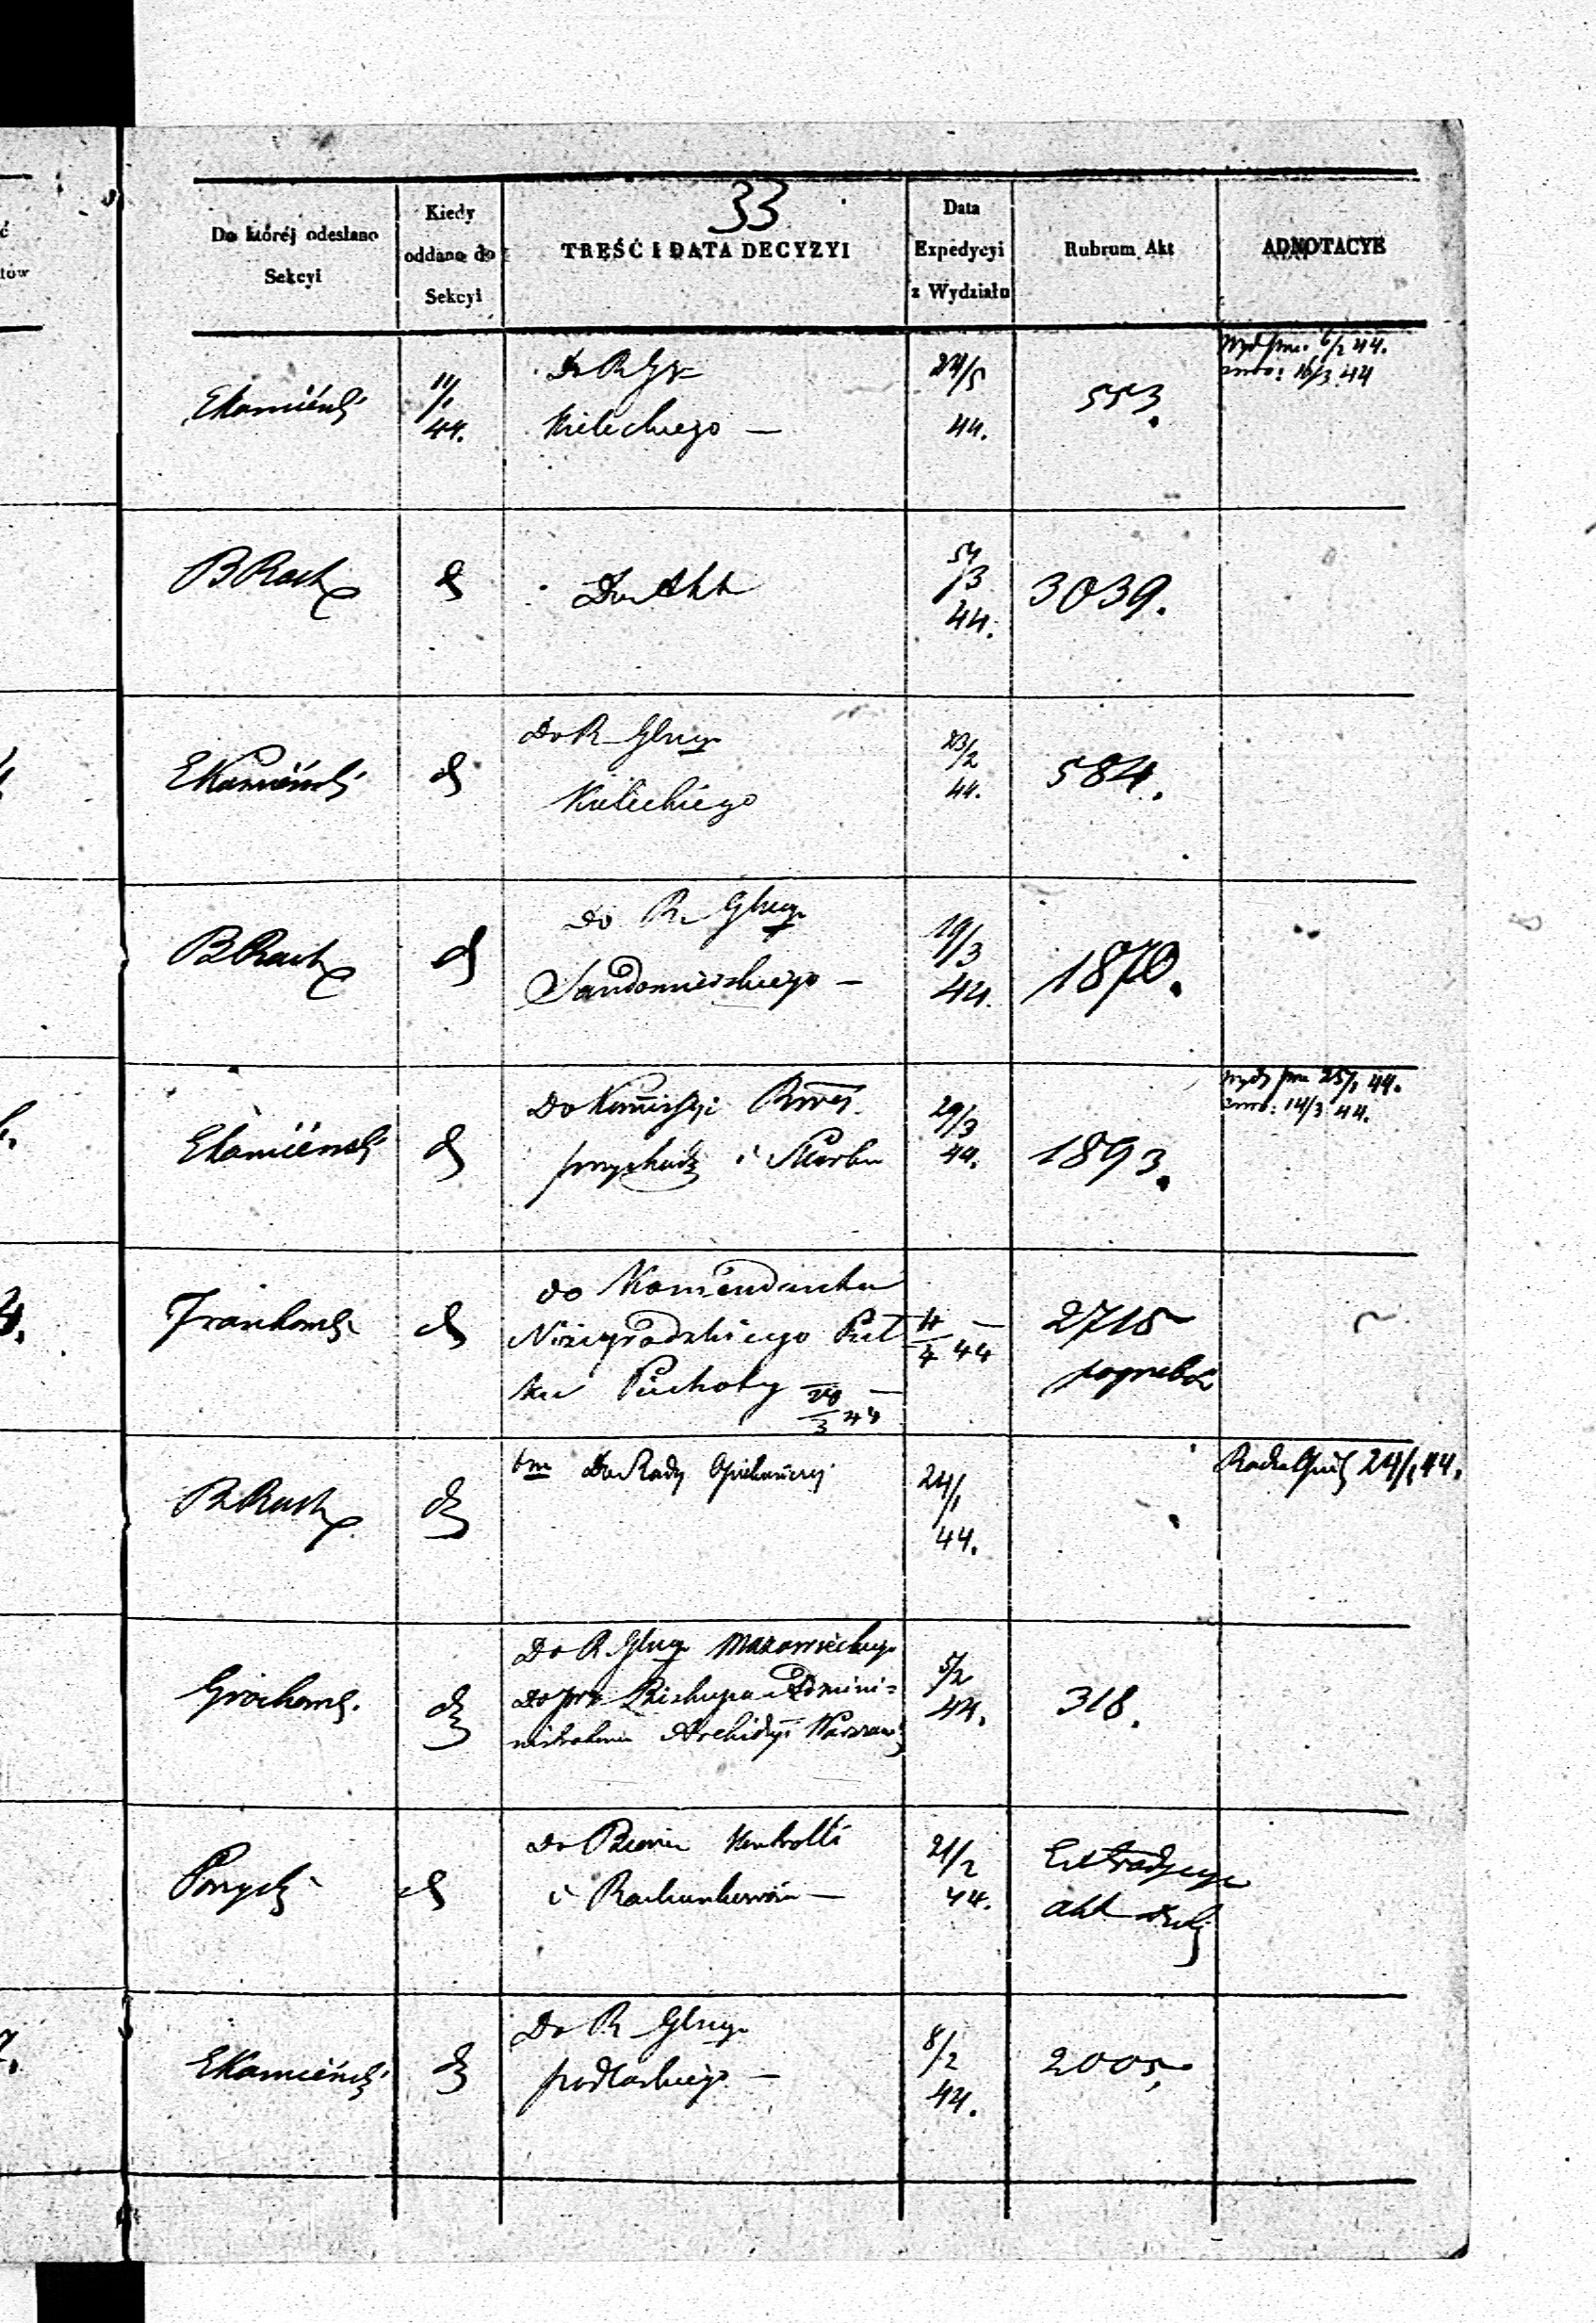 33
Do któréj odesłano Sekcyi
Kiedy oddano do Sekcyi
TREŚĆ I DATA DECYZYI
Data Expedycyi z Wydziału
Rubrum Akt
ADNOTACYE
EKamiéński
11/1 44.
Do R Gb
Kieleckiego —
24/5 44.
553.
6/2 44.
16/3 44
B Rach
d
Do Akt
54/3 44.
3039.
EKamiéński
d
Do R Gbnego
Kieleckiego
23/2 44.
584.
B Rach
d
do R Gbnego
Sandomierskiego —
19/3 44.
1870.
EKamieński
d
Do Kommissyi Rząej
przychodz i Skarbu
29/3 44.
1893.
25/1 44.
14/3 44.
d
do Komendanta
Niżegrodzkiego Puł
ku Piechoty 20/3 44
4/4 44
2715
pogrzeb
B Rach
d
Do Rady Opiekuńczej
24/1 44.
Rada Opiek 24/1 44.
Grochows.
d
Do R Gbnego Mazowieckiego
Do JW Biskupa Admini=
nistratora Archidyi Warszaws
5/2 44.
318.
d
Do Biura Kontrolli
i Rachunkowości —
21/2 44.
Extradycya
akt
EKamieński
d
Do R Gbnego
podlaskiego —
8/2 44.
2005.